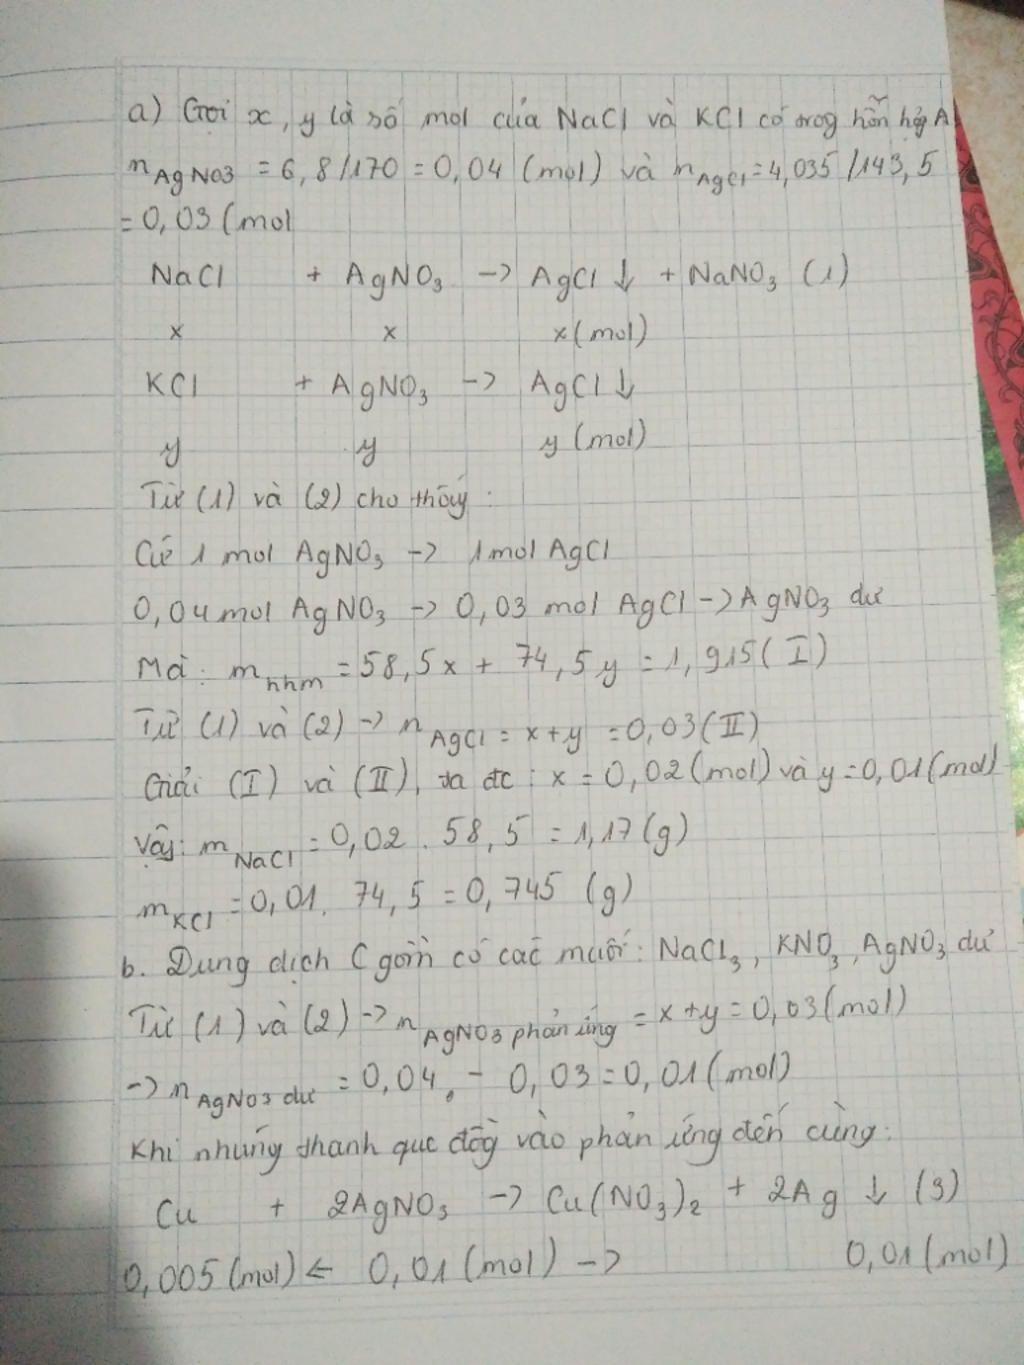 a) Gọi x, y là số mol của NaCl và KCl có trog hỗn hợp A
n AgNO3 = 6,8/170 = 0,04 (mol) và n AgCl = 4,035/143,5
= 0,03 (mol
NaCl + AgNO₃ -> AgCl ↓ + NaNO₃ (1)
x x x (mol)
KCl + AgNO₃ -> AgCl ↓
y y y (mol)
Từ (1) và (2) cho thấy:
Cứ 1 mol AgNO₃ -> 1 mol AgCl
0,04 mol AgNO₃ -> 0,03 mol AgCl -> AgNO₃ dư
Mà: m hhm = 58,5x + 74,5y = 1,915 (I)
Từ (1) và (2) -> n AgCl = x+y = 0,03 (II)
Giải (I) và (II), ta đc: x = 0,02 (mol) và y = 0,01 (mol)
Vậy: m NaCl = 0,02 . 58,5 = 1,17 (g)
m KCl = 0,01. 74,5 = 0,745 (g)
b. Dung dịch C gồm có các muối: NaCl₃, KNO₃, AgNO₃ dư
Từ (1) và (2) -> n AgNO3 phản ứng = x+y = 0,03 (mol)
-> n AgNO3 dư = 0,04 - 0,03 = 0,01 (mol)
Khi nhúng thanh que đồg vào phản ứng đến cùng:
Cu + 2AgNO₃ -> Cu(NO₃)₂ + 2Ag ↓ (3)
0,005 (mol) <- 0,01 (mol) -> 0,01 (mol)